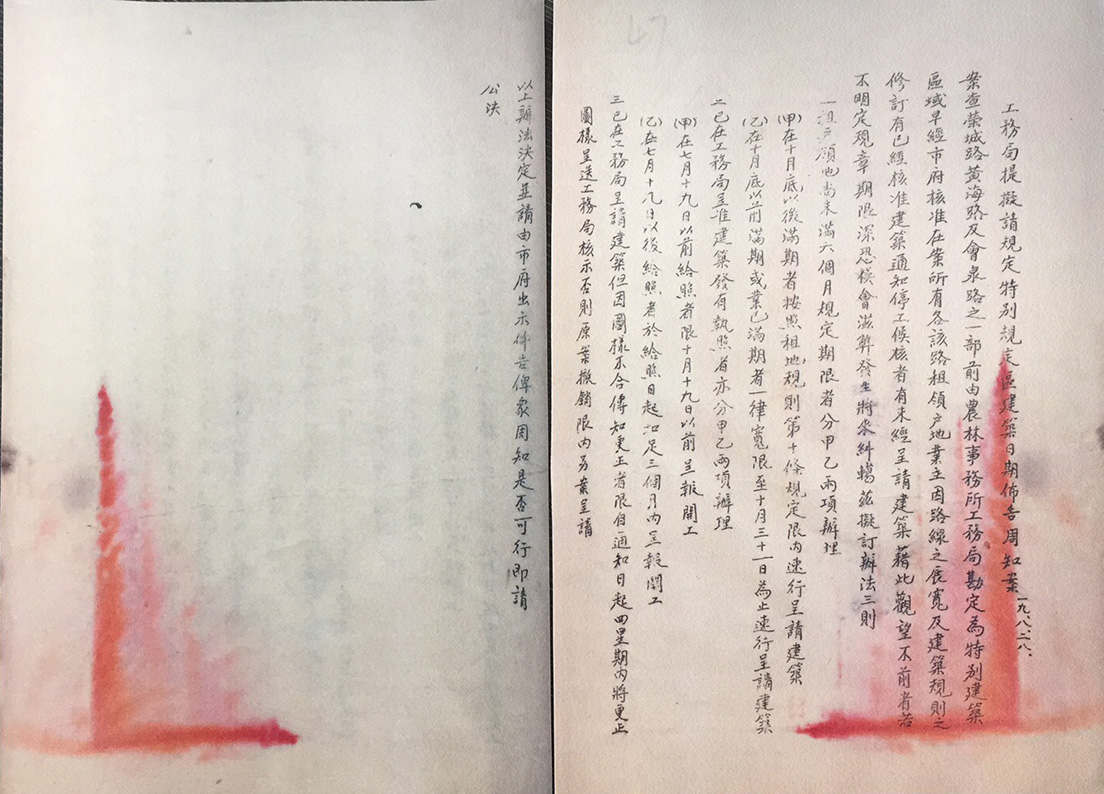 工務局提擬請規定特別規定區建築日期佈告周知案 一九、八、二八、
案查榮城路黃海路及會泉路之一部前由農林事務所工務局勘定為特別建築
區域早經市府核准在案所有各該路租領戶地業主因路線之展寬及建築規則之
修訂有已經核准建築通知停工候核者有未經呈請建築藉此觀望不前者若
不明定規章期限深恐模會滋弊發生將來糾轕茲擬訂辦法三則
一租 領地尚未滿六個月規定期限者分甲乙兩項辦理
(甲)在十月底以後滿期者按照租地規則第十條規定限內速行呈請建築
(乙)在十月底以前滿期或業已滿期者一律寬限至十月三十一日為止速行呈請建築
二已在工務局呈准建築發有執照者亦分甲乙兩項辦理
(甲)在七月十九日以前給照者限十月十九日以前呈報開工
(乙)在七月十九日以後給照者於給照日起扣足三個月內呈報開工
三已在工務局呈請建築但因圖樣不合傳知更正者限自通知日起四星期內將更正
圖樣呈送工務局核示否則原案撤銷限內另案呈請
以上辦法決定並請由市府出示佈告俾眾周知是否可行即請
公決